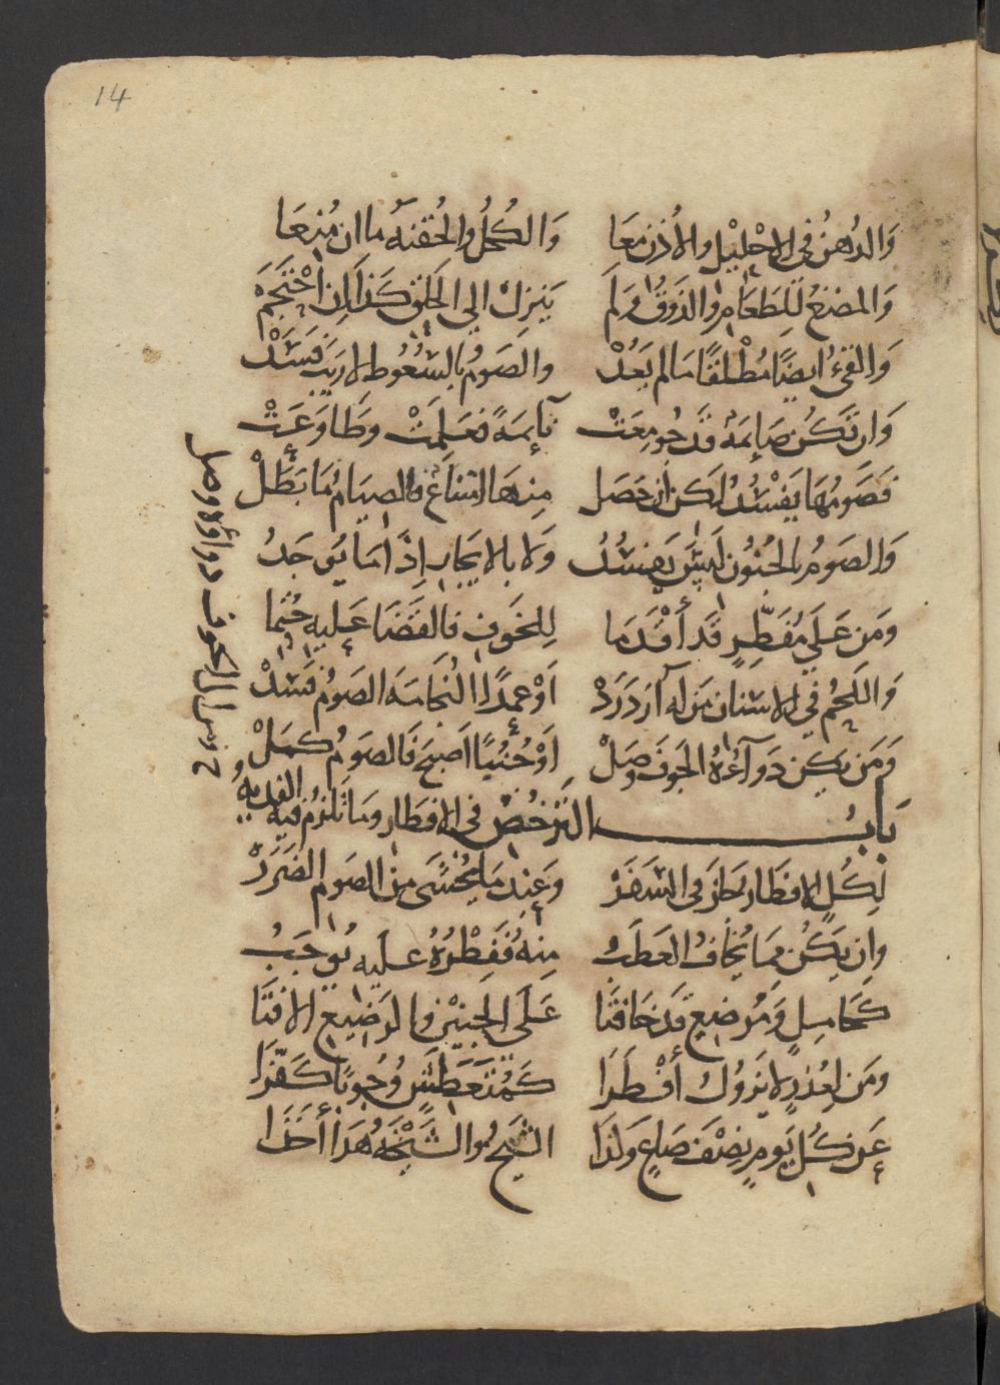 14
وَالدُهنُ في الاِحْلِيْلِ والاُذن مَعَا وَالكُحلُ والحُقنَه ما ان مُنِعَا
وَالمضغُ لِلطَعَامِ والذَوقُ وَلَم يَنِزل الي الحَلق كَذا لِمن احْتَجَم
وَالقيُ ايضًا مُطْلقًا مَا لم يَعُدْ والصَومُ بالسُعُوط لا رَيبَ فَسَدْ
وَان تَكُن صَائِمَةً قَد جُومِعَتْ نَائِمَةً فعَلِمَتْ وطَاوَعَتْ
فَصَومُهَا يَفْسُدُ لكن ان حَصَل مِنهَا امتنَاعٌ فالصيَامُ مَا بَطَلْ
وَالصَومُ بالجُنُون لَيسَ يَفسُدُ وَلا بالايجاب اِذَا مَا يُوجَدُ
وَمَن عَلَي مُفَطِّرٍ قَد أقْدَمَا لِلخَوفِ فالقَضَا عَليهِ حُتِما
وَاللَحُم في الاسنان مَن لَه آزدَرَدْ اَوْ عمدًا النُخَامَة الصَومُ فَسَدْ
وَمَن يكن دَوآءُهُ الجَوفَ وصَلْ اَوْ جُنُبًا اَصبَحَ فَالصَومُ كمَلْ
بَابُ التَرخُصْ في الافطار ومَا تلزمُ فيه الفديةُ
لِكُلٍ الافطار جَازَ في السَفَرْ وَعِند مَا يُخشَى مِن الصَوم الضَرَرْ
وان يَكُن مِمَا يُخَافُ العَطَبُ مِنهُ فَفِطْرُهُ عليه يُوجَبُ
كَحَامِلٍ وَمُرضِعٍ قَد خَافَتَا عَلَى الجَنِيْنِ والرَضِيع الافتَا
ومَن لِعُذرٍ لا يَزُولُ أفْطَرَا كَمُتَعَطِّشٍ وُجُوبًا كَفّرَا
عَن كُلِ يَومٍ نِصْفَ صَاعٍ ولذَا الشَيخُ والشَيْخَهُ هَذا أخذَا